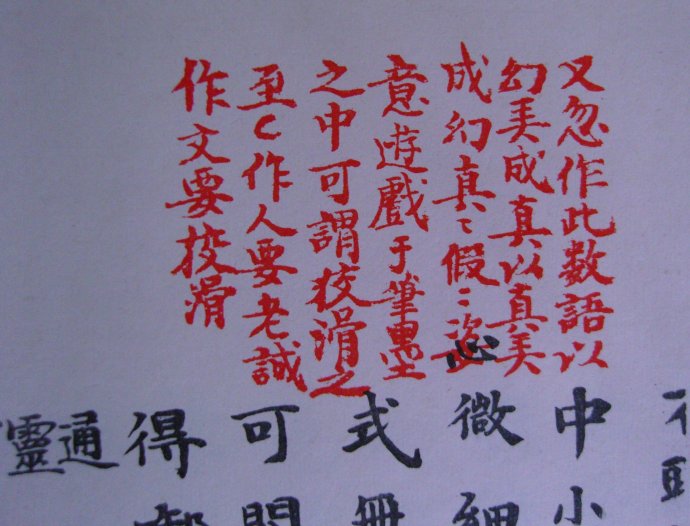 又忽作此数語以
幻美成真以真美
成幻真〻假〻恣
意遊戲于筆墨
之中可謂狡滑之
至〻作人要老誠
作文要狡滑
中小
微細
式冊
可
得
通
靈